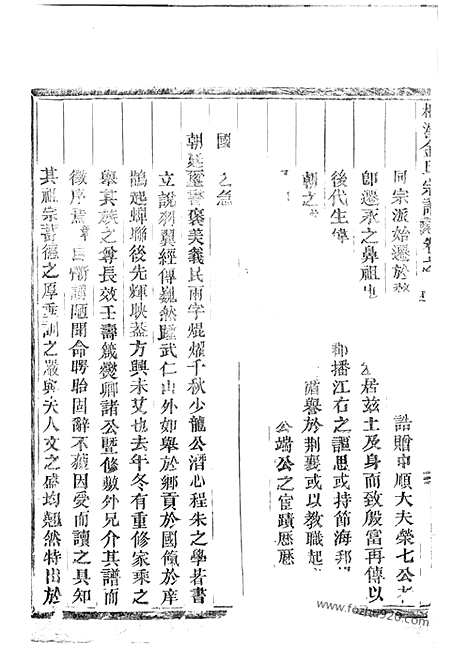 金氏宗譜
同宗派始遷於 誥贈中順大夫榮七公
卽遷承之鼻祖也 居茲土及身而致殷富再傳以
後代生偉 郡播江右之謳思或持節海邦
朝之 蜚譽於荆襄或以教職起
公端公之宦蹟歷歷
國之急
朝廷璽書褒美義民兩字焜燿千秋少龍公潛心程朱之學著書
立說羽翼經傳巍然躋武仁山外如舉於鄉貢於國僃於庠
鵲起蟬聯後先輝映葢方興未艾也去年冬有重修家乘之
舉其族之尊長效壬壽籛燮卿諸公曁修敷外兄介其譜而
徵序焉 自慚譾陋聞命愕眙固辭不獲因受而讀之具知
其祖宗蓄德之厚垂訓之嚴與夫人文之盛均翹然特出於
www.fozhu920.com